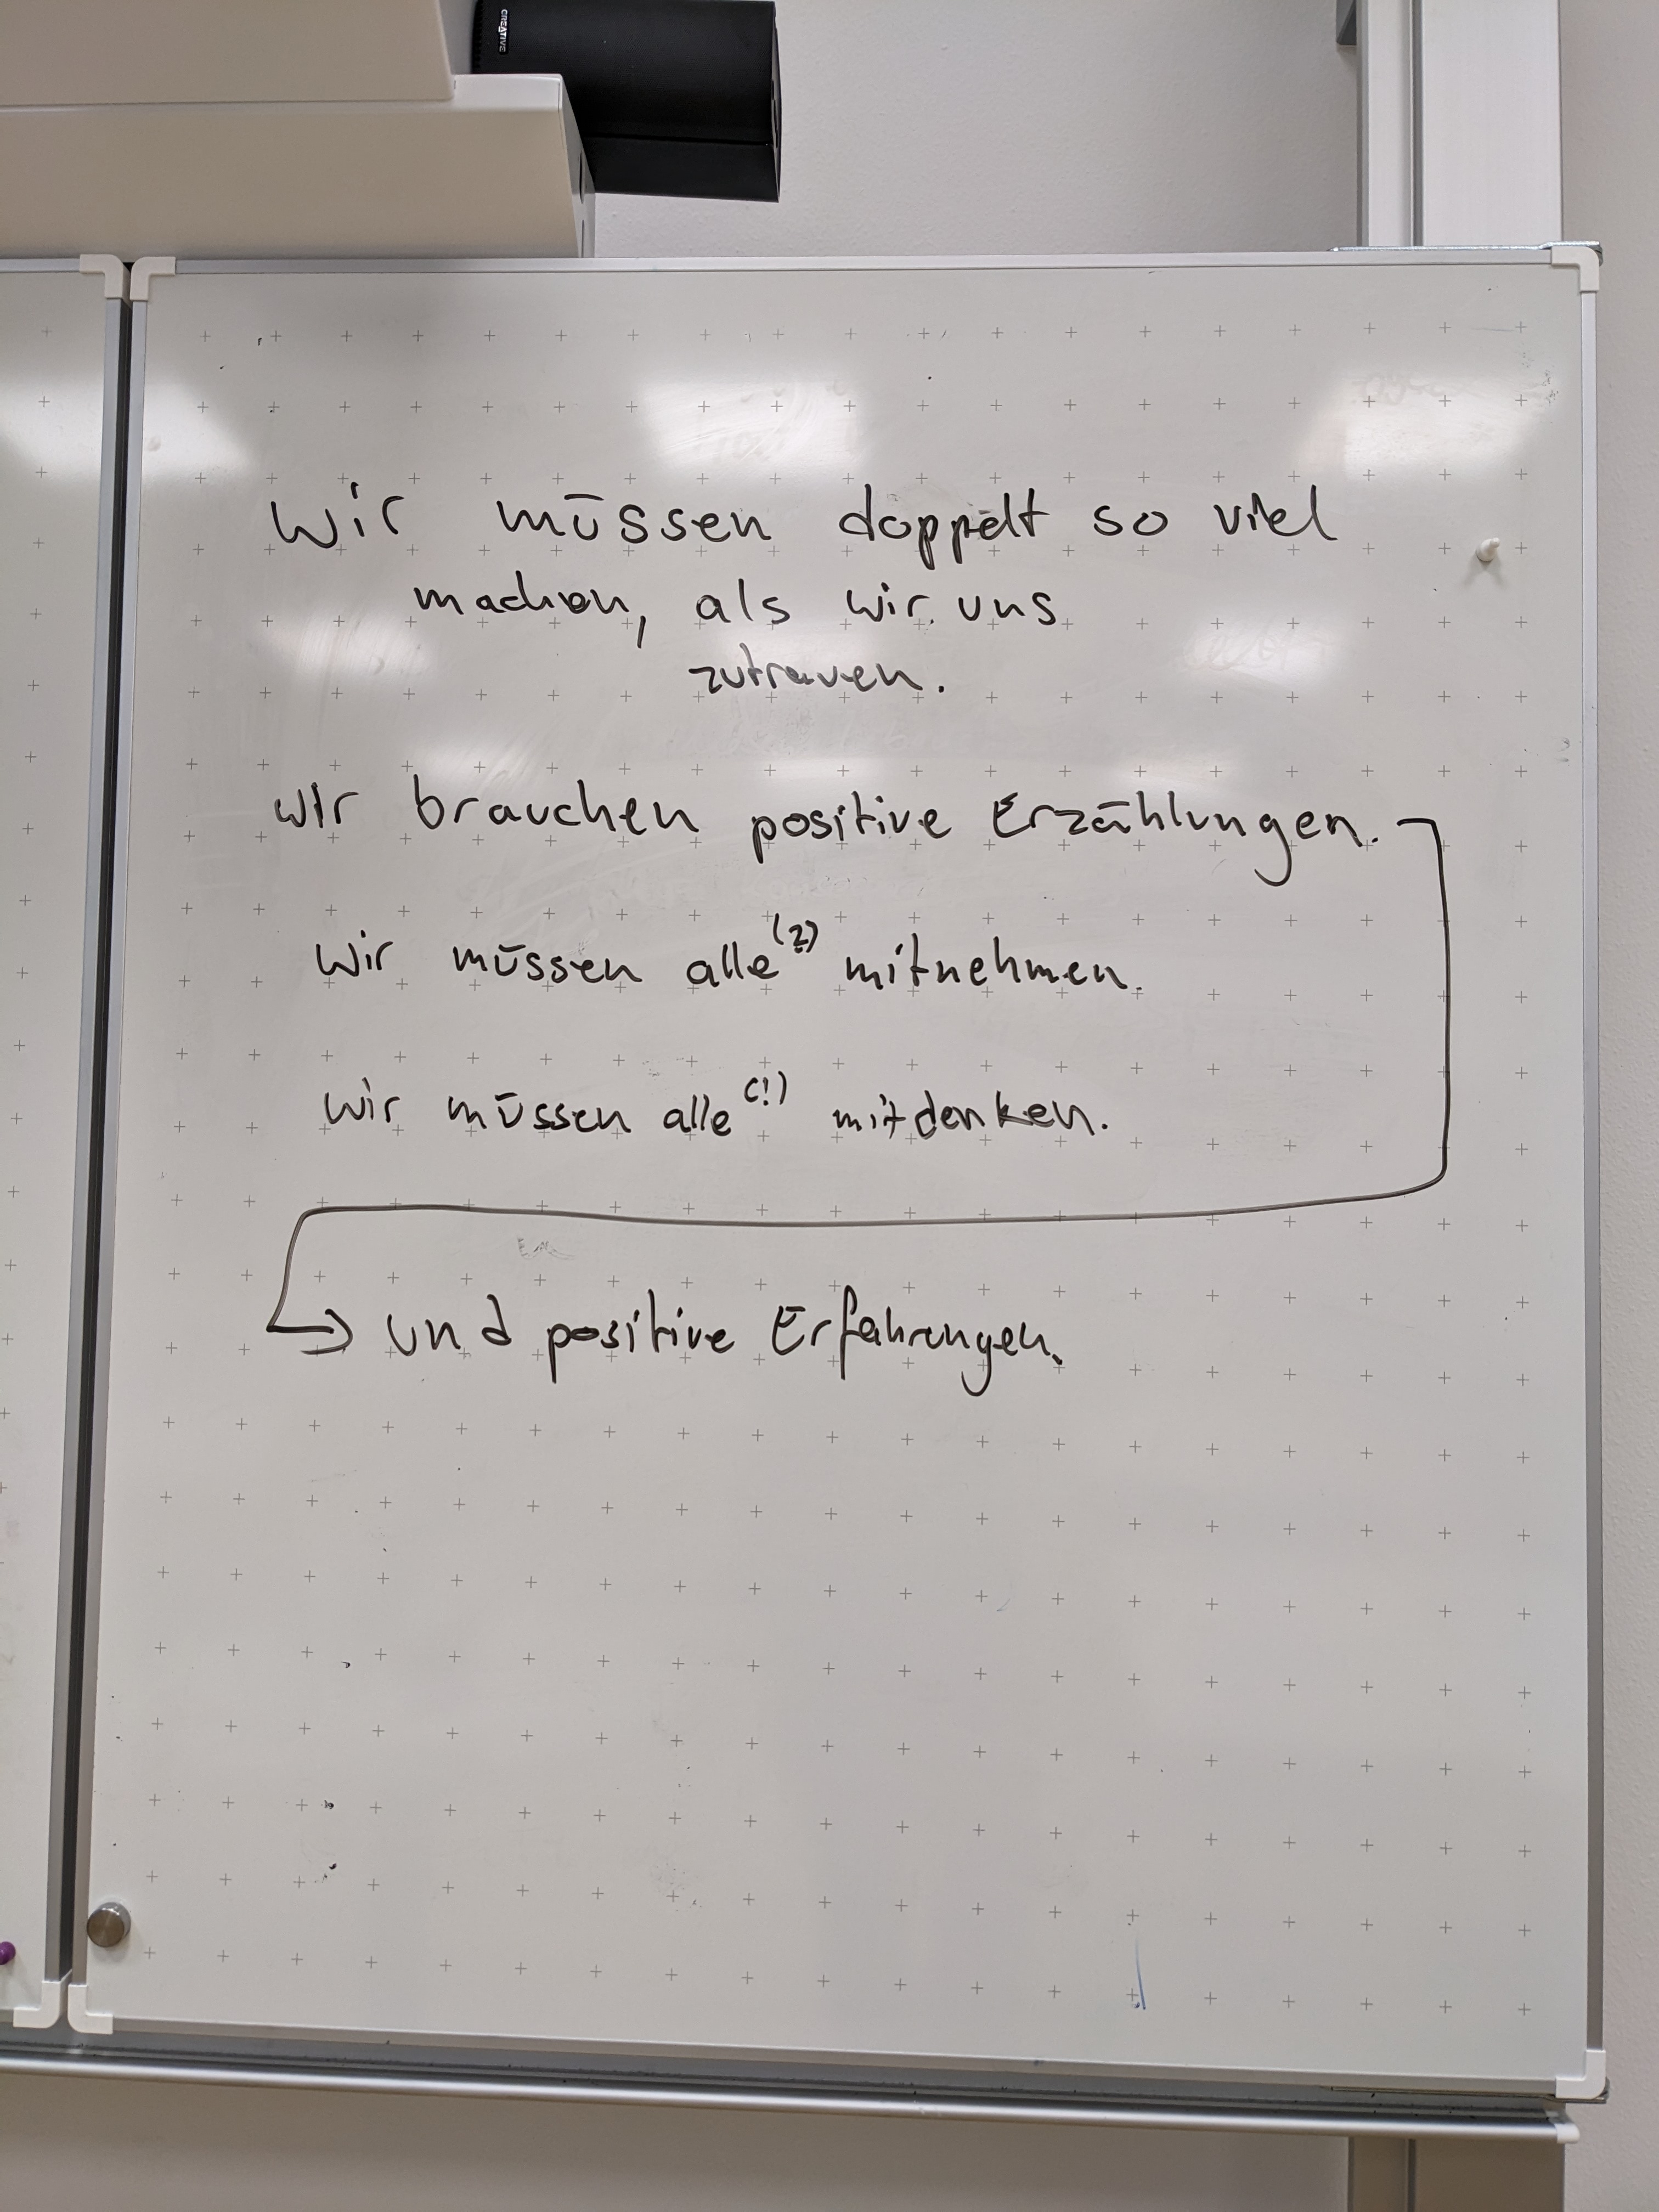 CREATIVE
Wir müssen doppelt so viel
machen, als wir uns
zutrauen.
Wir brauchen positive Erzählungen.
Wir müssen alle (?) mitnehmen.
Wir müssen alle (!) mitdenken.
→ und positive Erfahrungen.